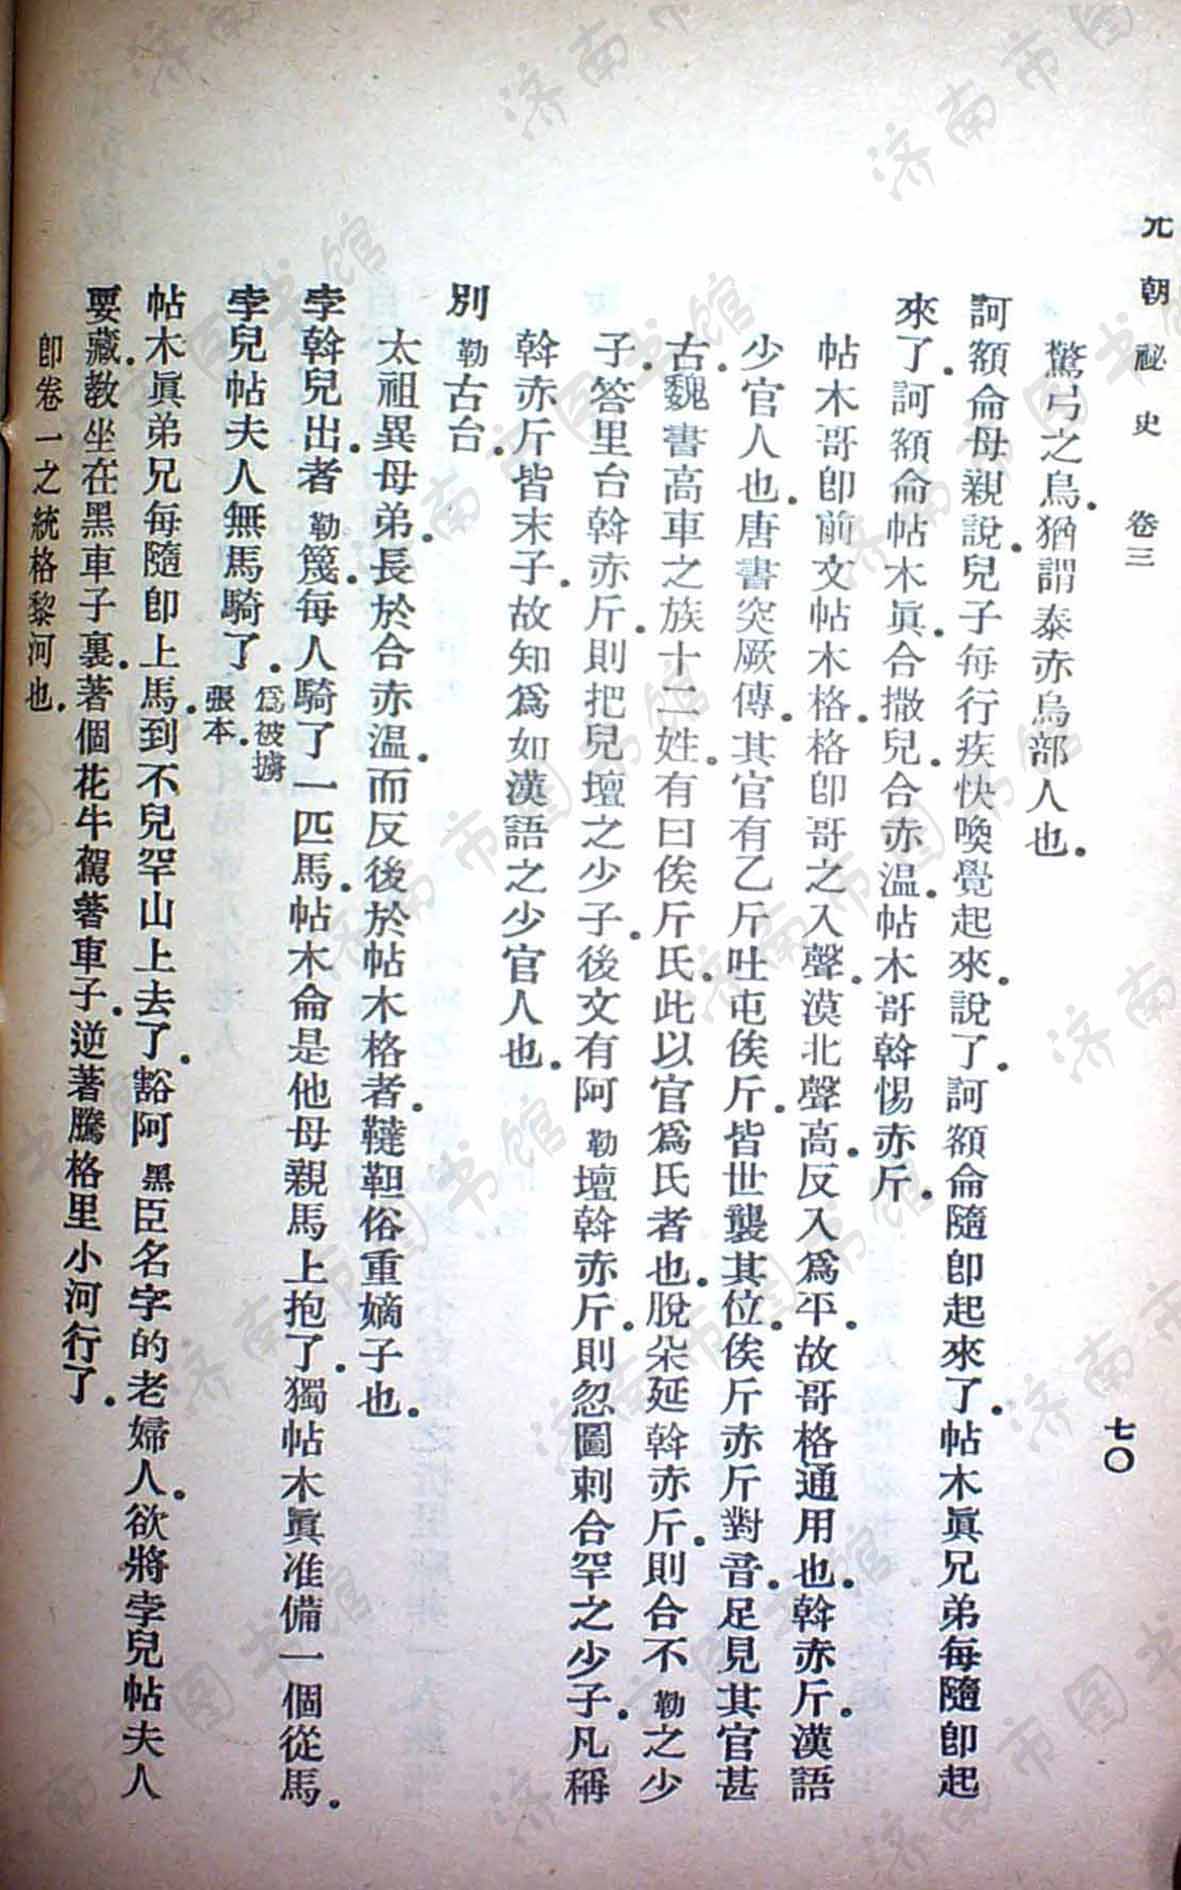 元朝祕史 卷三 七〇
驚弓之鳥。猶謂泰赤烏部人也。
訶額侖母親說。兒子每行疾快喚覺起來。說了。訶額侖隨卽起來了。帖木眞兄弟每隨卽起
來了。訶額侖帖木眞。合撒兒。合赤溫。帖木哥斡惕赤斤。
帖木哥卽前文帖木格。格卽哥之入聲。漠北聲高。反入爲平。故哥格通用也。斡赤斤。漢語
少官人也。唐書突厥傳。其官有乙斤吐屯俟斤。皆世襲其位。俟斤赤斤對音。足見其官甚
古。魏書高車之族十二姓。有曰俟斤氏。此以官爲氏者也。脫朵延斡赤斤。則合不勒之少
子。答里台斡赤斤。則把兒壇之少子。後文有阿勒壇斡赤斤。則忽圖剌合罕之少子。凡稱
斡赤斤皆末子。故知爲如漢語之少官人也。
別勒古台。
太祖異母弟。長於合赤温。而反後於帖木格者。韃靼俗重嫡子也。
孛斡兒出。者勒篾。每人騎了一匹馬。帖木侖是他母親馬上抱了。獨帖木眞准備一個從馬。
孛兒帖夫人無馬騎了。爲被擄
張本。
帖木眞弟兄每隨卽上馬。到不兒罕山上去了。豁阿黑臣名字的老婦人。欲將孛兒帖夫人
要藏。教坐在黑車子裏。著個花牛駕著車子。逆著騰格里小河行了。
卽卷一之統格黎河也。